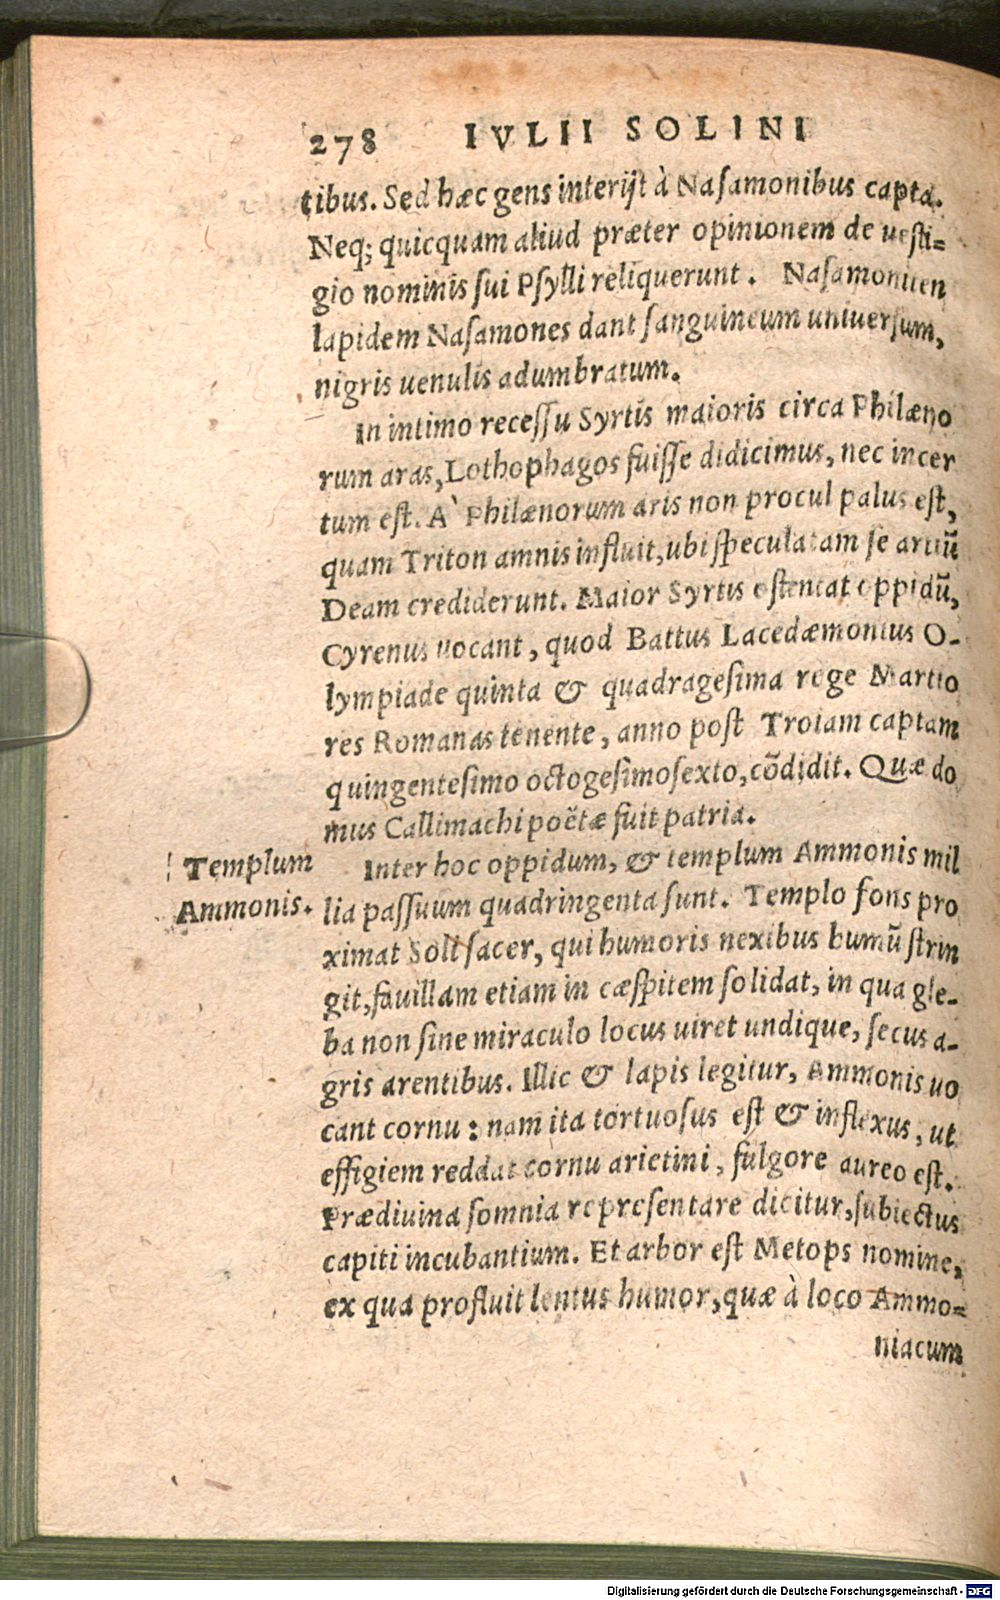 278 IVLII SOLINI
tibus. Sed hæc gens interijt à Nasamonibus capta.
Neq; quicquam aliud præter opinionem de uesti=
gio nominis sui Psylli reliquerunt. Nasamoniten
lapidem Nasamones dant sanguineum uniuersum,
nigris uenulis adumbratum.
In intimo recessu Syrtis maioris circa Philæno
rum aras, Lothophagos fuisse didicimus, nec incer
tum est. A` Philænorum aris non procul palus est,
quam Triton amnis influit, ubi speculatam se artiũ
Deam crediderunt. Maior Syrtis ostentat oppidũ,
Cyrenus uocant, quod Battus Lacedæmonius O-
lympiade quinta & quadragesima rege Martio
res Romanas tenente, anno post Troiam captam
quingentesimo octogesimosexto, cõdidit. Quæ do
mus Callimachi poëtæ fuit patria.
Templum
Ammonis.
Inter hoc oppidum, & templum Ammonis mil
lia passuum quadringenta sunt. Templo fons pro
ximat Soli sacer, qui humoris nexibus humũ strin
git, fauillam etiam in cæspitem solidat, in qua gle-
ba non sine miraculo locus uiret undique, secus a-
gris arentibus. Illic & lapis legitur, Ammonis uo
cant cornu: nam ita tortuosus est & inflexus, ut
effigiem reddat cornu arietini, fulgore aureo est.
Prædiuina somnia repræsentare dicitur, subiectus
capiti incubantium. Et arbor est Metops nomine,
ex qua profluit lentus humor, quæ à loco Ammo=
niacum
Digitalisierung gefördert durch die Deutsche Forschungsgemeinschaft - DFG